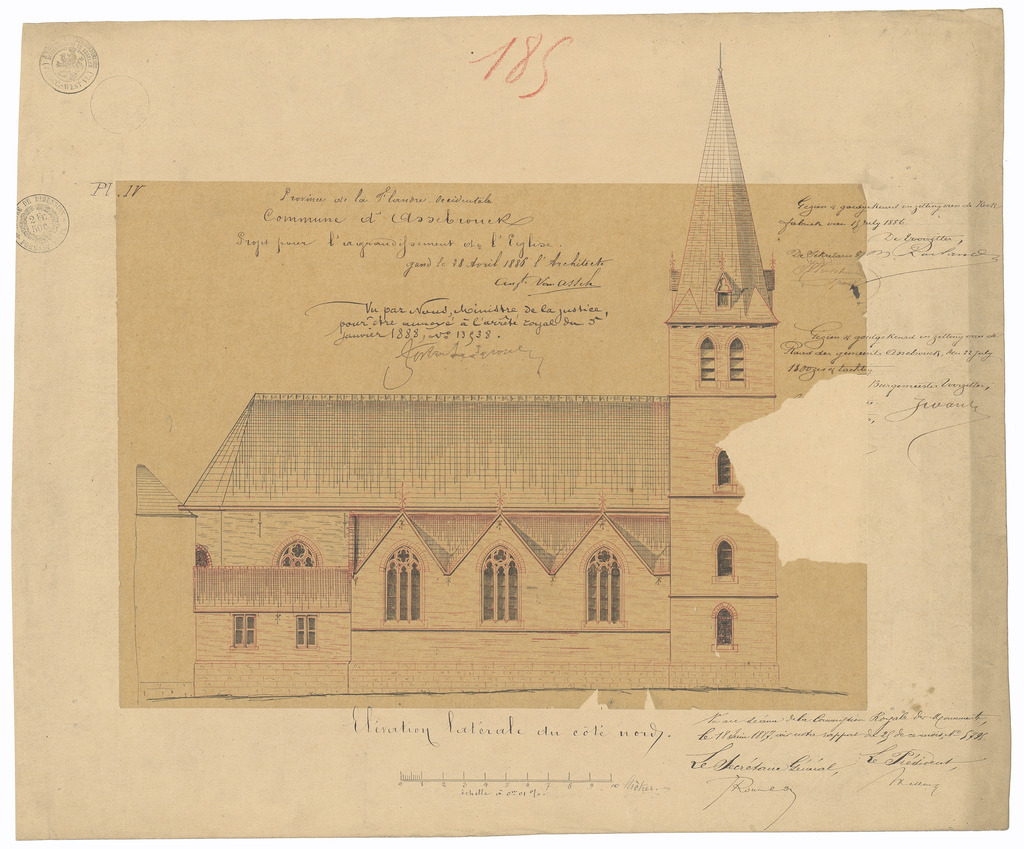 185
Pl. IV
Province de la Flandre Occidentale
Commune d'Assebrouck
Projet pour l'agrandissement de l'Eglise.
gand le 28 Avril 1886 l'Architecte
Augt. Van Assche
Vu par Nous, Ministre de la justice,
pour être annexé à l'arrêté royal du 5
janvier 1888, No 13938.
Gezien & goedgekeurd in zitting van de Kerk
fabriek van 15 July 1886
De Voorzitter,
De Sekretaris
Gezien & goedgekeurd in zitting van de
Raad der gemeente Assebrouck, den 22 July
1800zes & tachtig
Burgemeester Voorzitter,
Elévation latérale du côté nord.
0 1 2 3 4 5 6 7 8 9 10 Mètres.
échelle à 0m 01 %.
Vu en séance de la Commission Royale des Monuments,
le 18 juin 1887, voir notre rapport du 25 de ce mois, No
Le Secrétaire Général, Le Président,